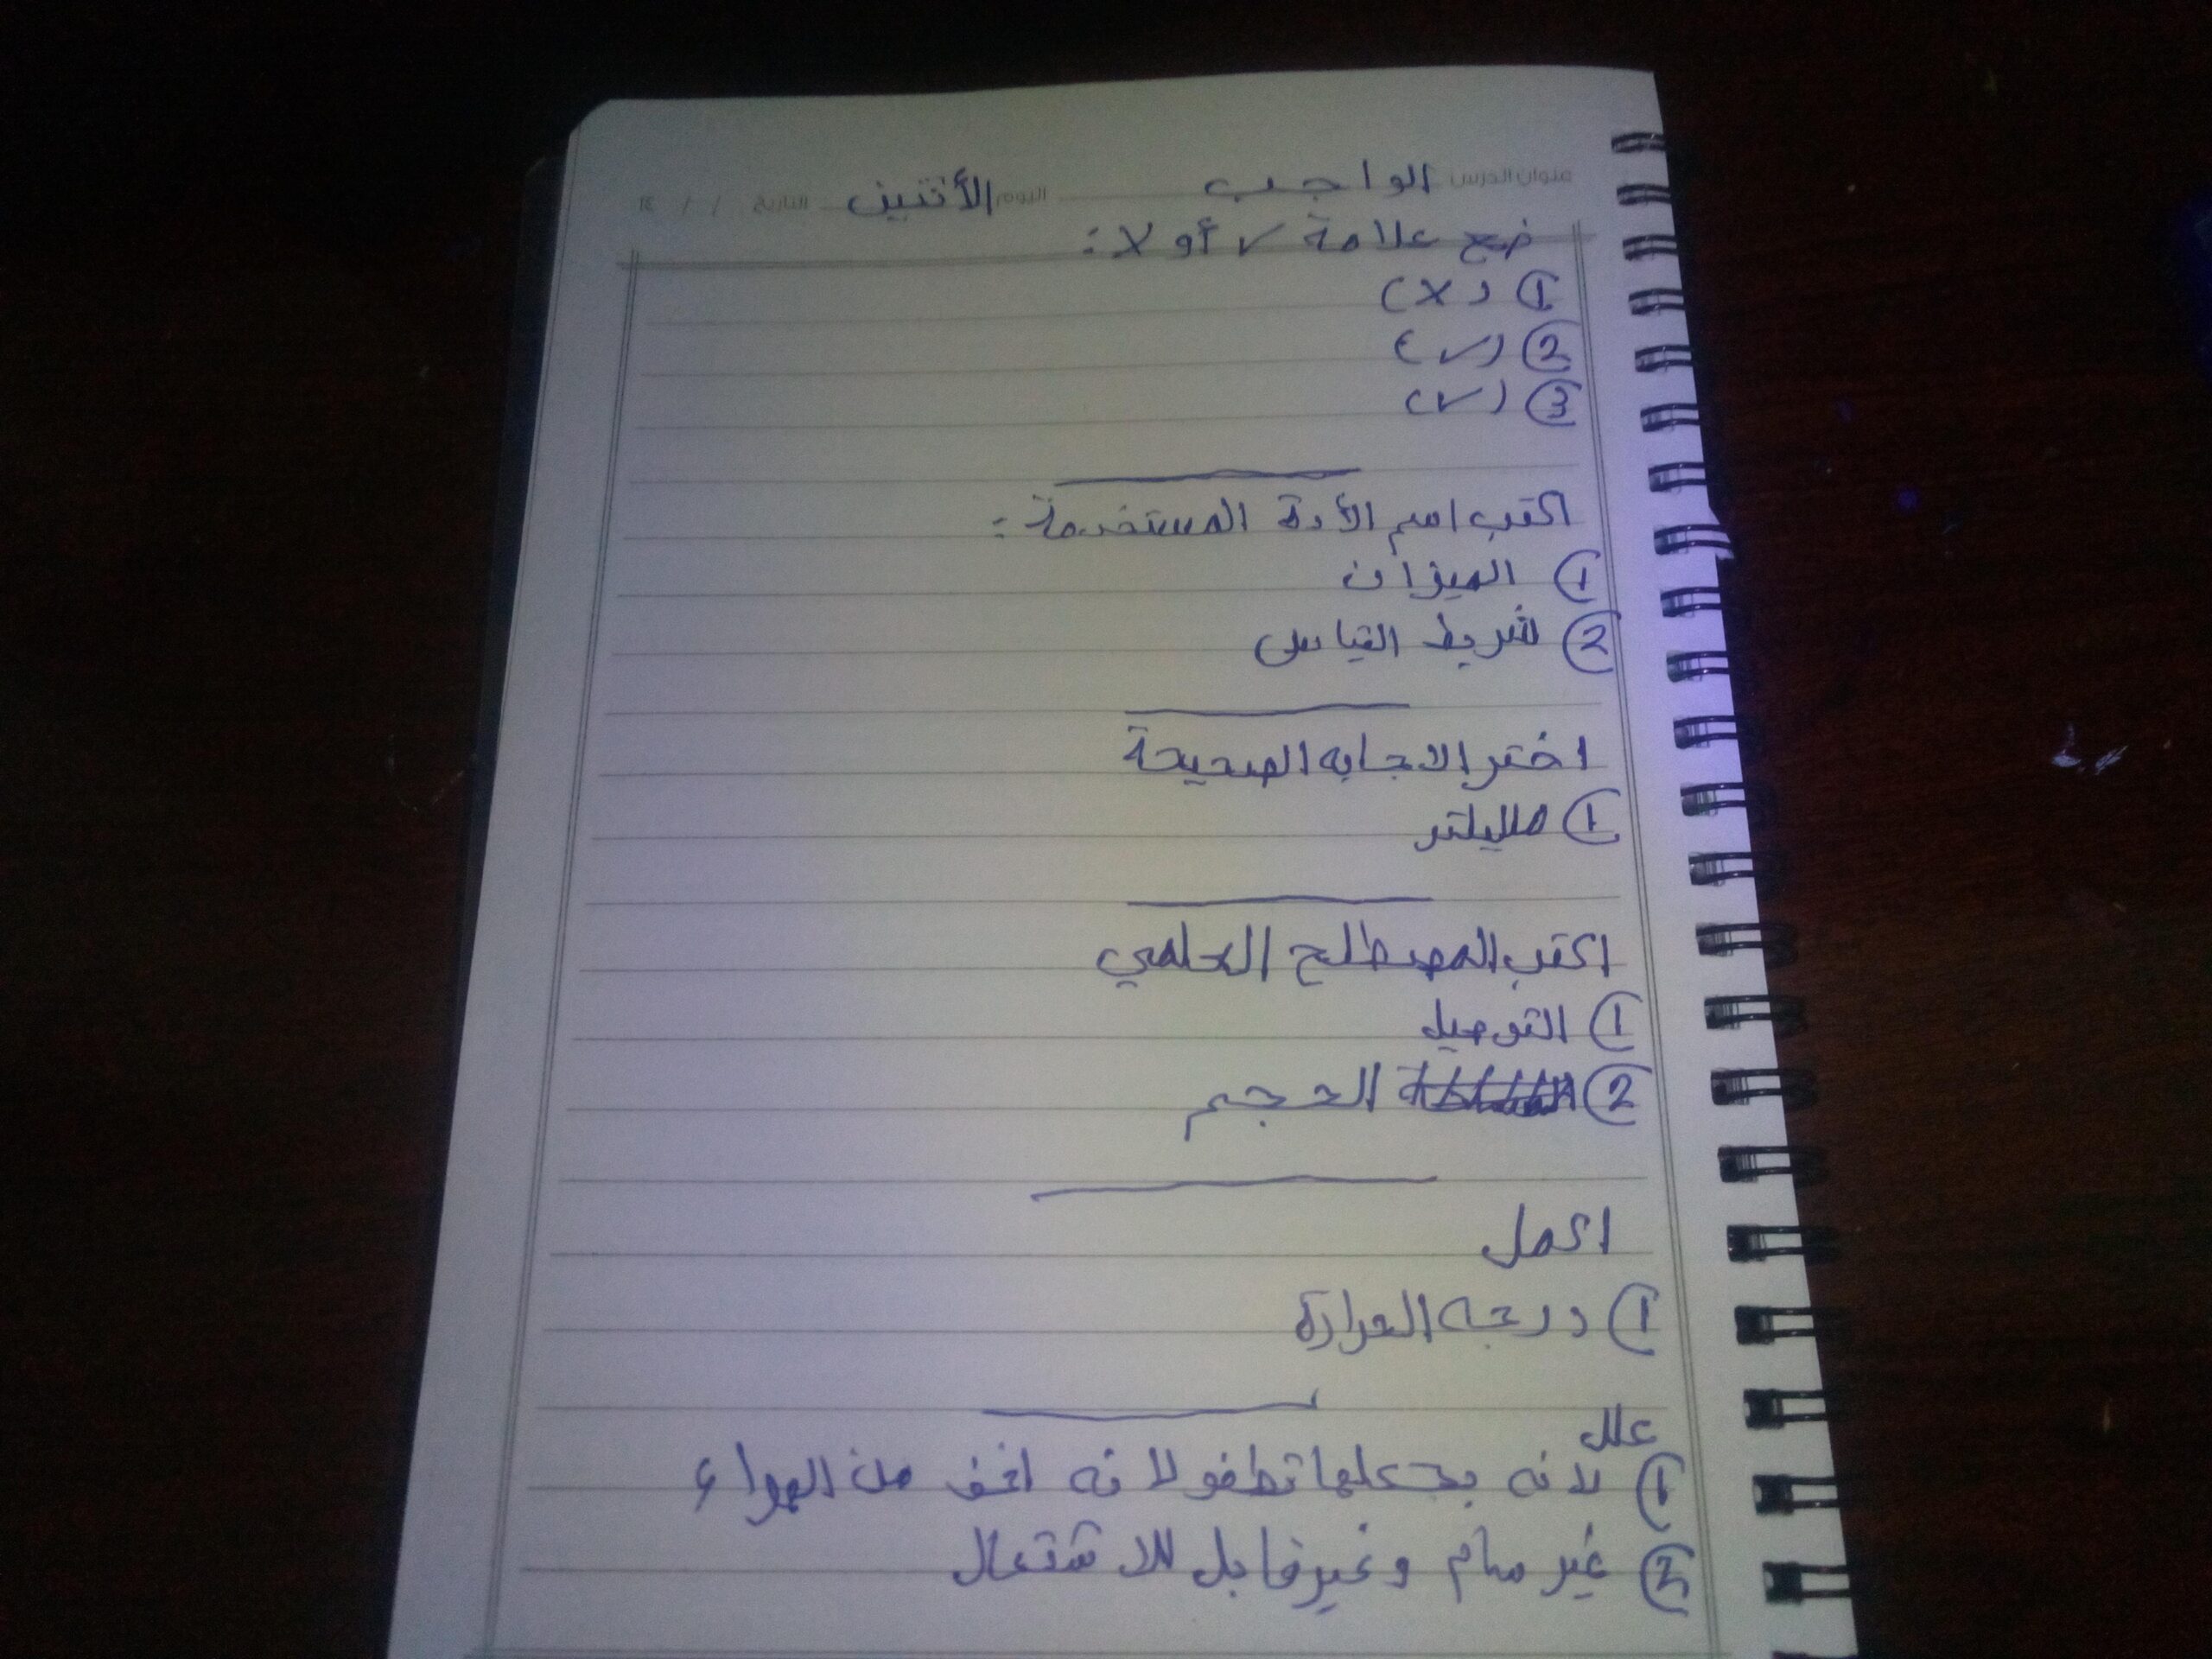 عنوان الدرس الواجب اليوم الأثنين التاريخ / / ١٤
ضع علامة ✓ أو X :
① (X)
② (✓)
③ (✓)
اكتب اسم الأدة المستخدمة :
① الميزان
② شريط القياس
اختر الاجابه الصحيحة
① ملليلتر
اكتب المصطلح العلمي
① التوصيل
② الحجم
اكمل
① درجه الحرارة
علل
① لانه يجعلها تطفو لانه اخف من الهواء
② غير سام وغير قابل للاشتعال